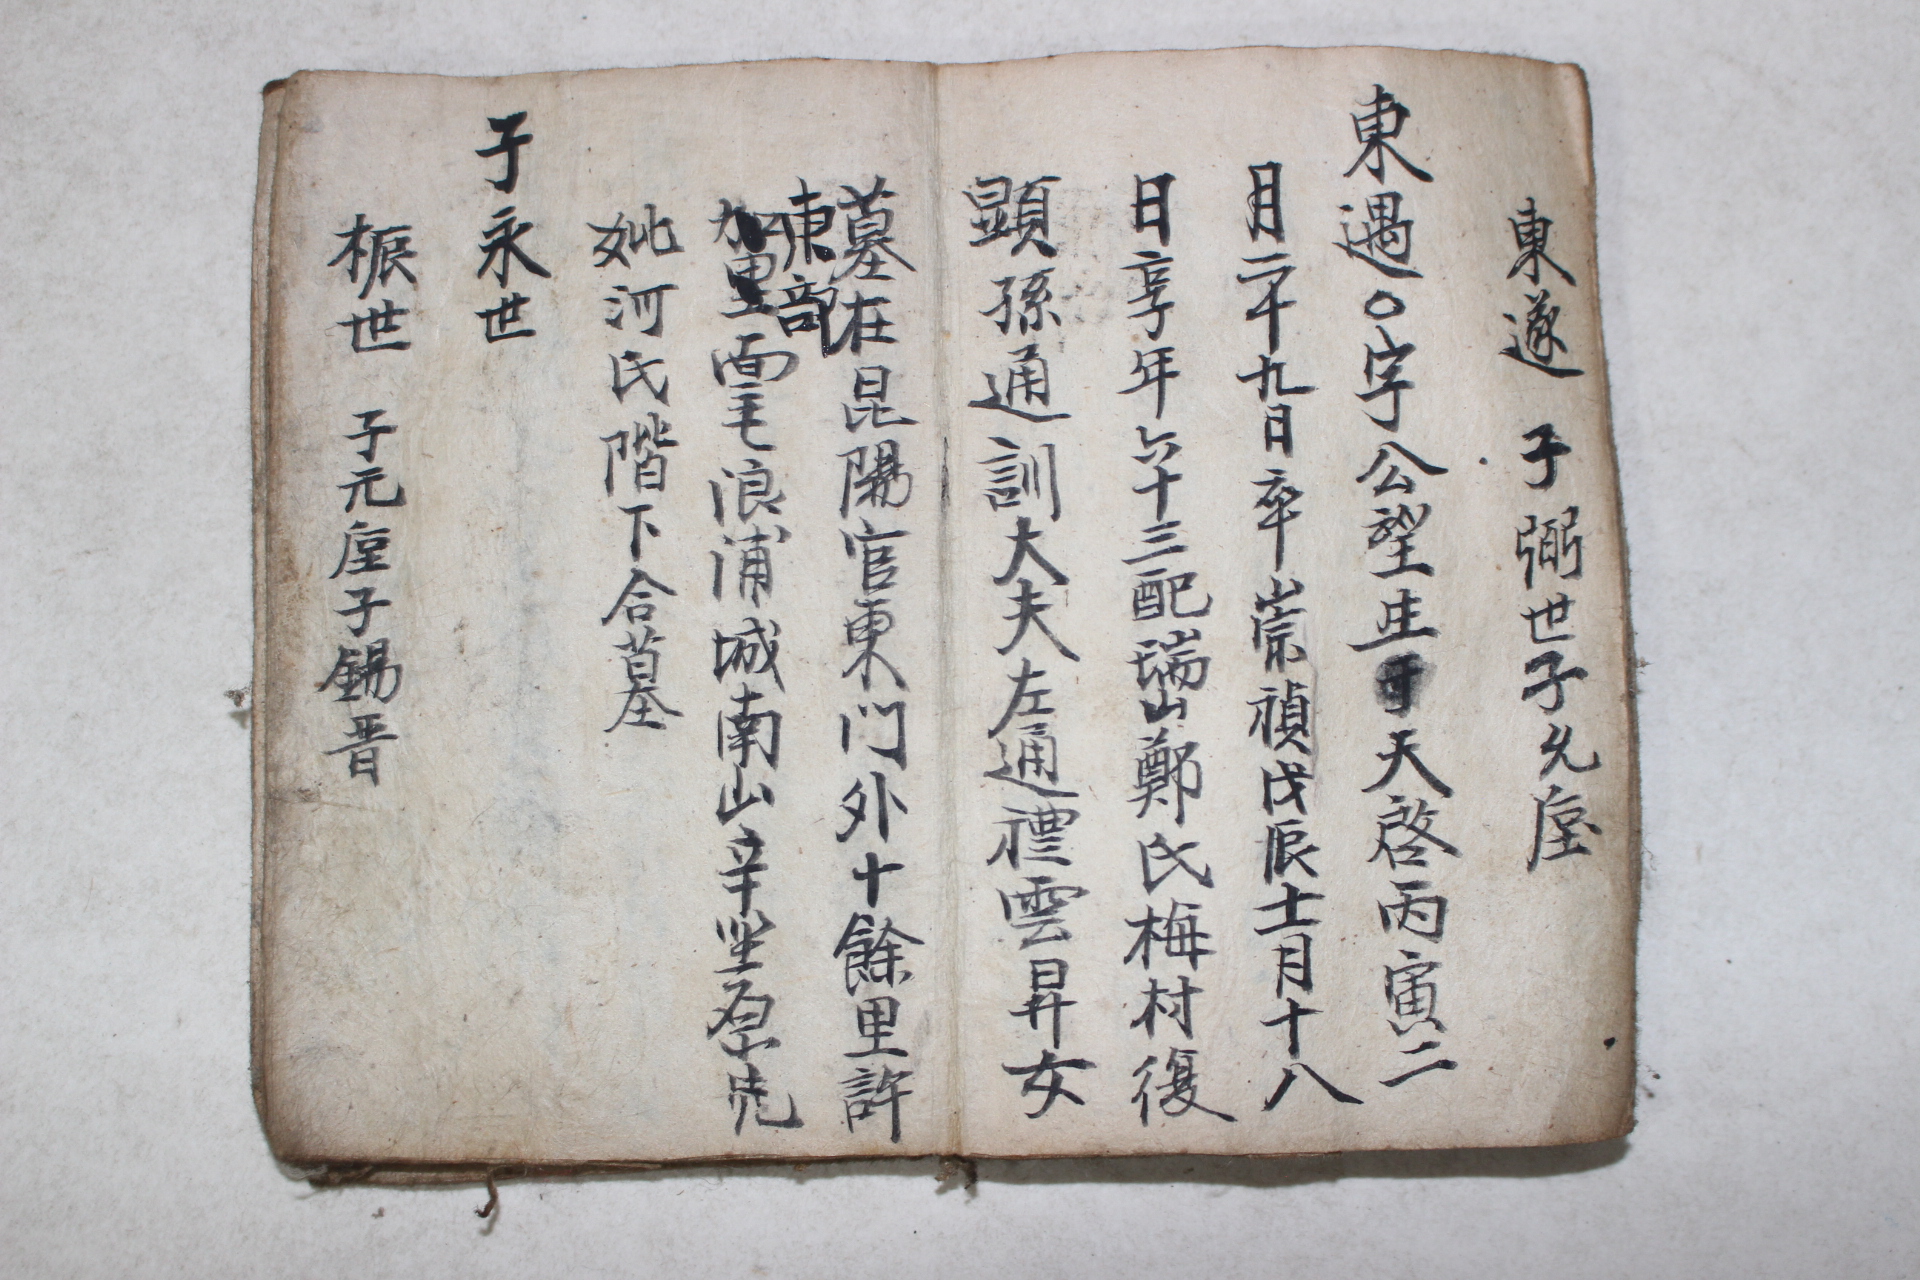 東遂 子弼世子允垕
東遇○字公望生于天啓丙寅二
月二十九日卒崇禎戊辰十二月十八
日享年六十三配瑞山鄭氏梅村復
顯孫通訓大夫左通禮雲昇女
墓在昆陽官東門外十餘里許
東部
加里面毛浪浦城南山辛坐原先
妣河氏階下合墓
子永世
振世 子元垕子錫晋